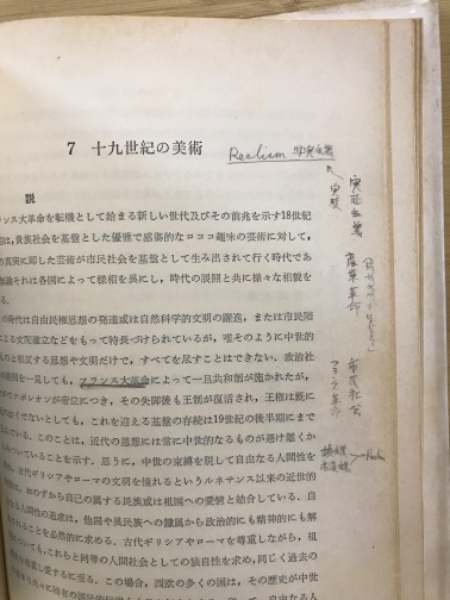 7 十九世紀の美術
Realism 写実主義
説
ランス大革命を転機として始まる新しい世代及びその前兆を示す18世紀
は，貴族社会を基盤とした優雅で感傷的なロココ趣味の芸術に対して，
の真実に即した芸術が市民社会を基盤として生み出されて行く時代であ
論それは各国によって様相を異にし，時代の展開と共に様々な相貌を
る。
の時代は自由民権思想の発達或は自然科学的文明の躍進，または市民階
による支配確立などをもって特長づけられているが，唯そのように中世的
ものと相反する思想や文明だけで，すべてを尽すことはできない。政治社
の展開を一見しても，フランス大革命によって一旦共和制が施かれたが，
てナポレオンが帝位につき，その失脚後も王制が復活され，王権は既に
くないとしても，これを迎える基盤の存続は19世紀の後半期にまで
んでいる。このことは，近代の思想には常に中世的なものが避け難くか
みついていることを示す。思うに，中世の束縛を脱して自由なる人間性を
，古代ギリシアやローマの文明を憧れるというルネサンス以来の近世的
は，おのずから自己の属する民族或は祖国への愛情と結合している。自
なる人間性の追求は，他国や異民族への隷属から政治的にも精神的にも解
されることを必然的に求める。古代ギリシアやローマを尊重しながら，祖
についても，これらと同等の人間社会としての独自性を求め，同じく過去の
を尊重し愛するに至る。この場合，西欧の多くの国は，その歴史が中世
産業革命
市民社会
フランス革命